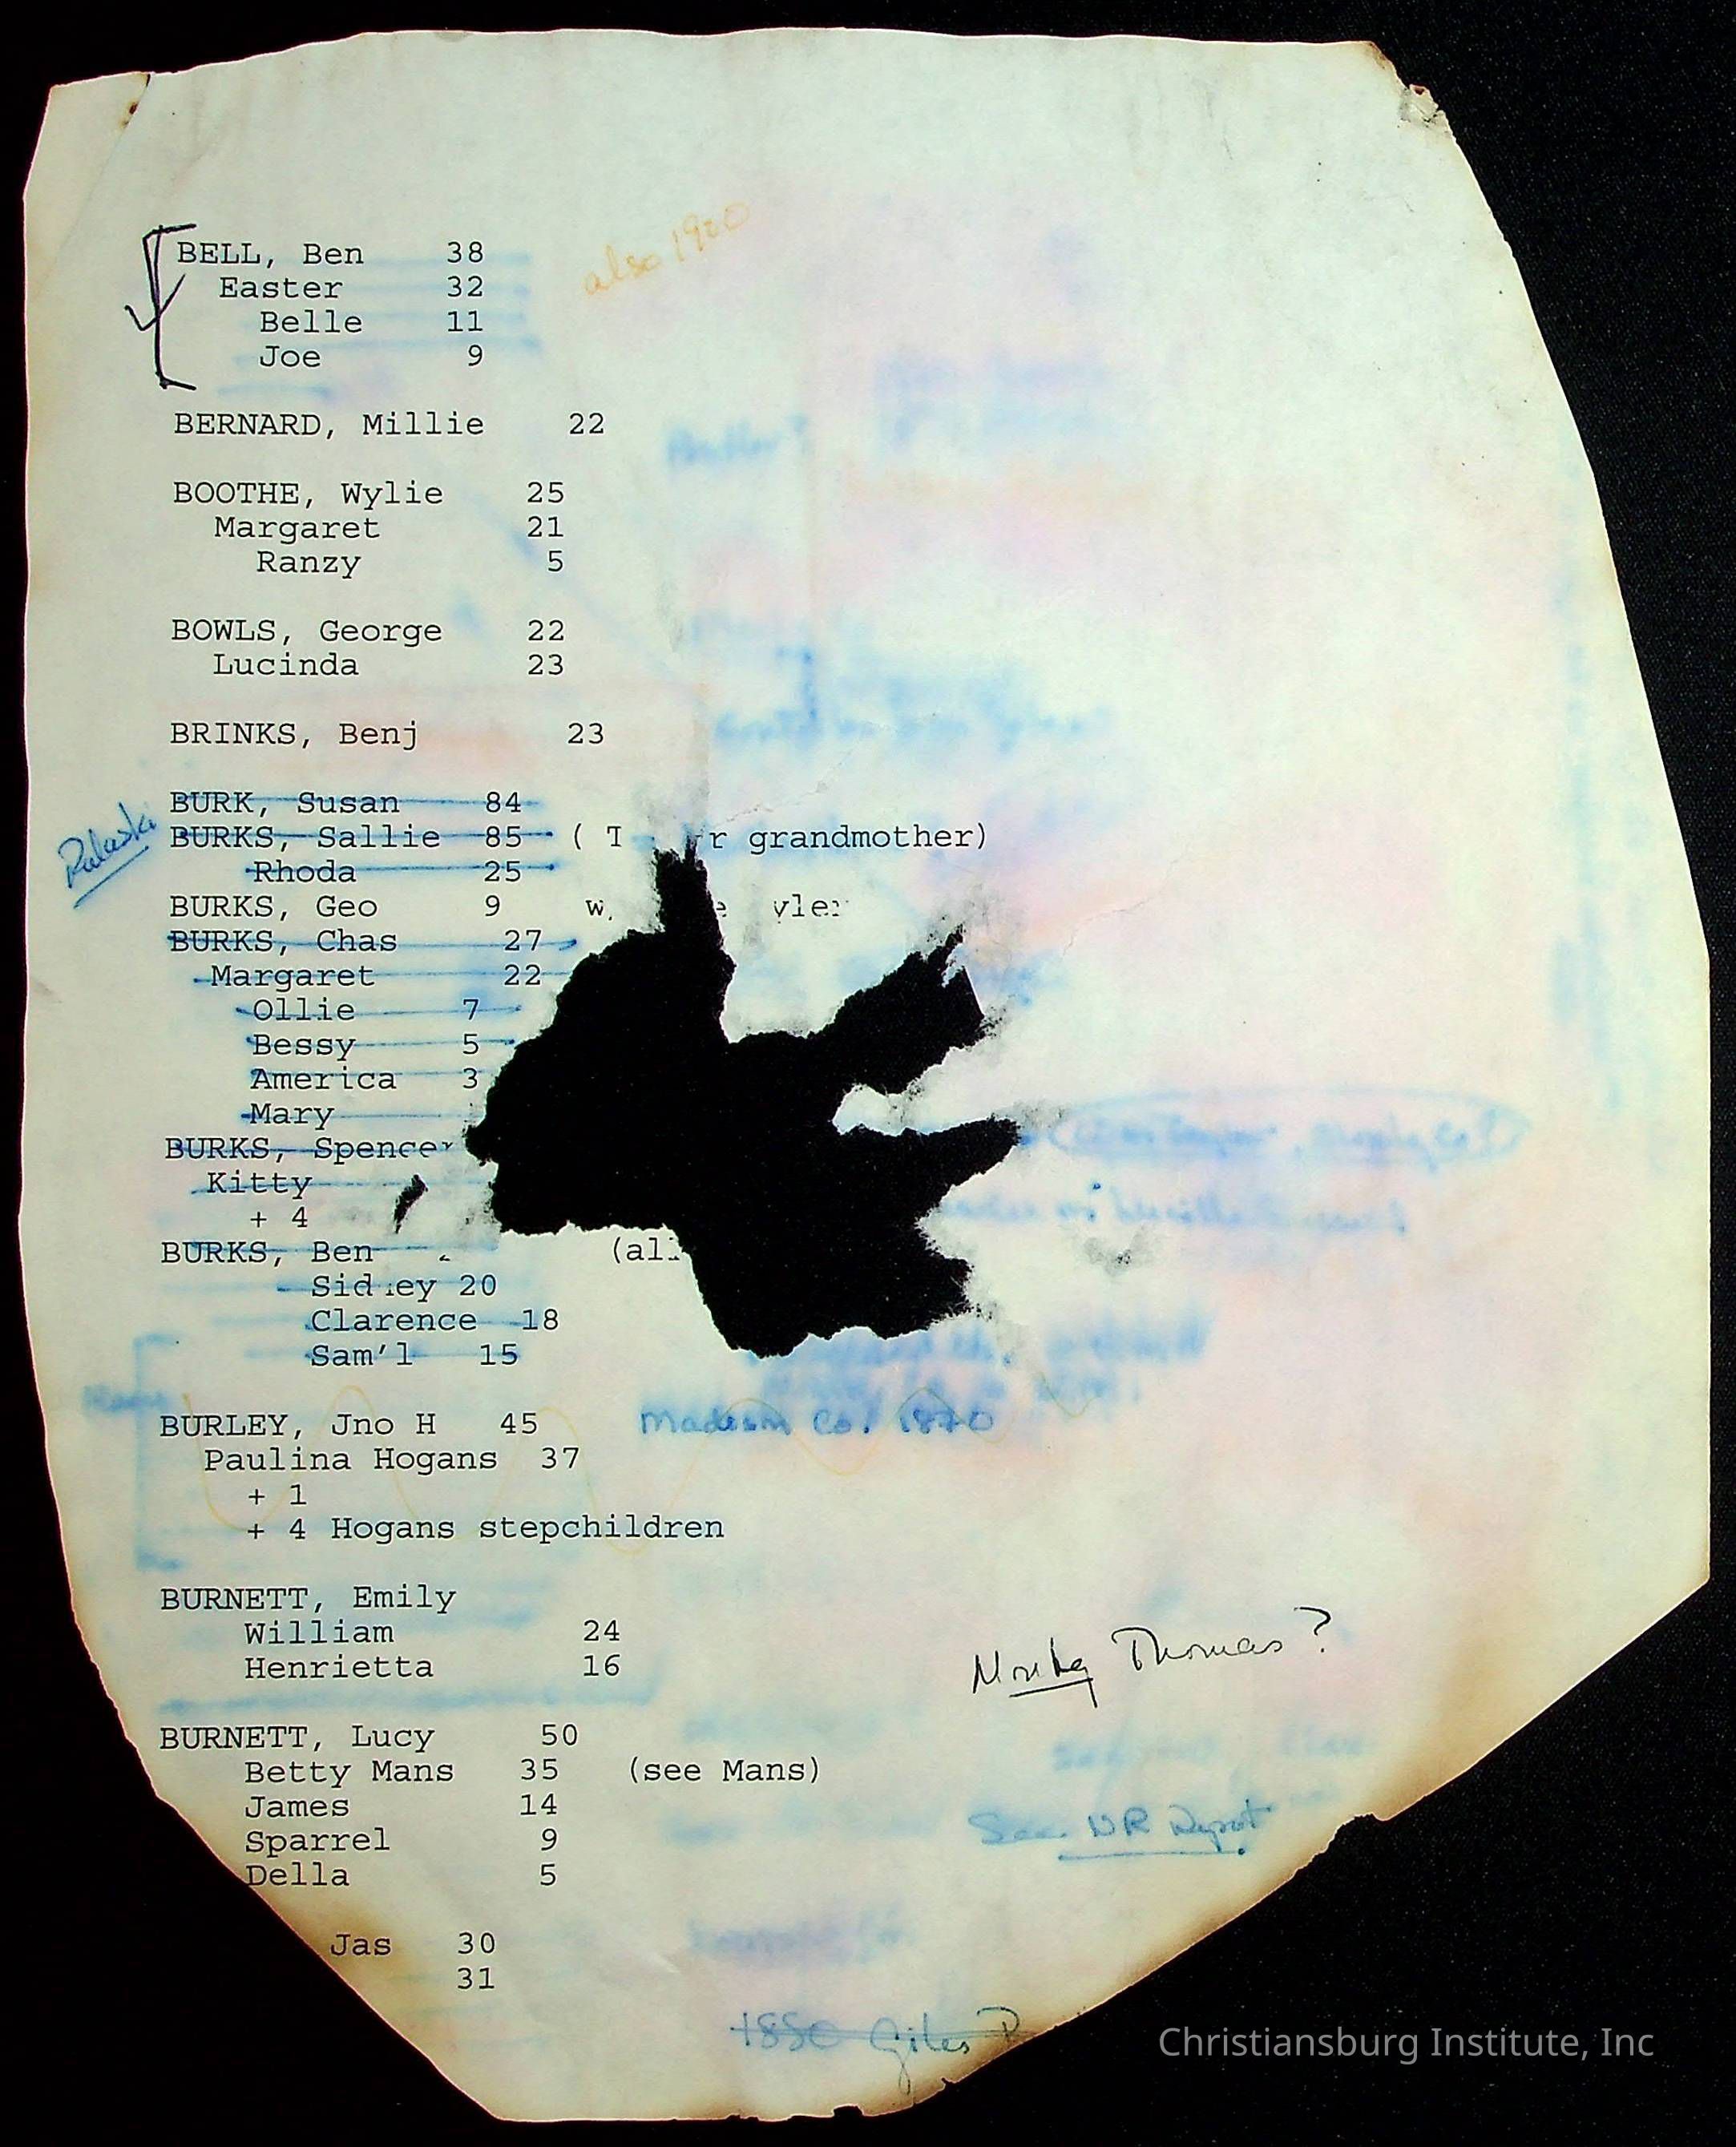 BELL, Ben 38
also 1900
Easter 32
Belle 11
Joe 9
BERNARD, Millie 22
BOOTHE, Wylie 25
Margaret 21
Ranzy 5
BOWLS, George 22
Lucinda 23
BRINKS, Benj 23
Pulaski
BURK, Susan 84
BURKS, Sallie 85 ( T r grandmother)
Rhoda 25
BURKS, Geo 9
BURKS, Chas 27
Margaret 22
Ollie 7
Bessy 5
America 3
Mary
BURKS, Spencer
Kitty
+ 4
BURKS, Ben (all
Sidney 20
Clarence 18
Sam'l 15
BURLEY, Jno H 45 Madison Co. 1870
Paulina Hogans 37
+ 1
+ 4 Hogans stepchildren
BURNETT, Emily
William 24
Henrietta 16
Thomas?
BURNETT, Lucy 50
Betty Mans 35 (see Mans)
James 14
See NR Depot
Sparrel 9
Della 5
Jas 30
31
1880 Giles
Christiansburg Institute, Inc